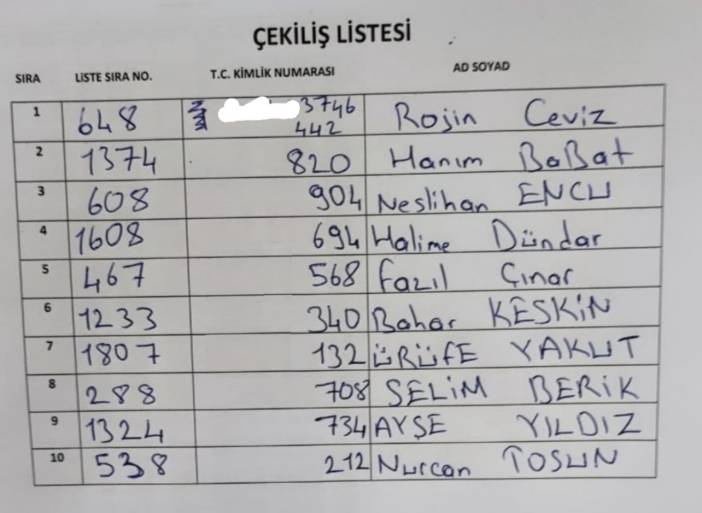 ÇEKİLİŞ LİSTESİ
SIRA LİSTE SIRA NO. T.C. KİMLİK NUMARASI AD SOYAD
1 648 3746 442 Rojin Ceviz
2 1374 820 Hanım BaBat
3 608 904 Neslihan ENCU
4 1608 694 Halime Dündar
5 467 568 Fazıl Çınar
6 1233 340 Bahar KESKİN
7 1807 132 ÜRÜFE YAKUT
8 288 708 SELİM BERİK
9 1324 734 AYŞE YILDIZ
10 538 212 Nurcan TOSUN